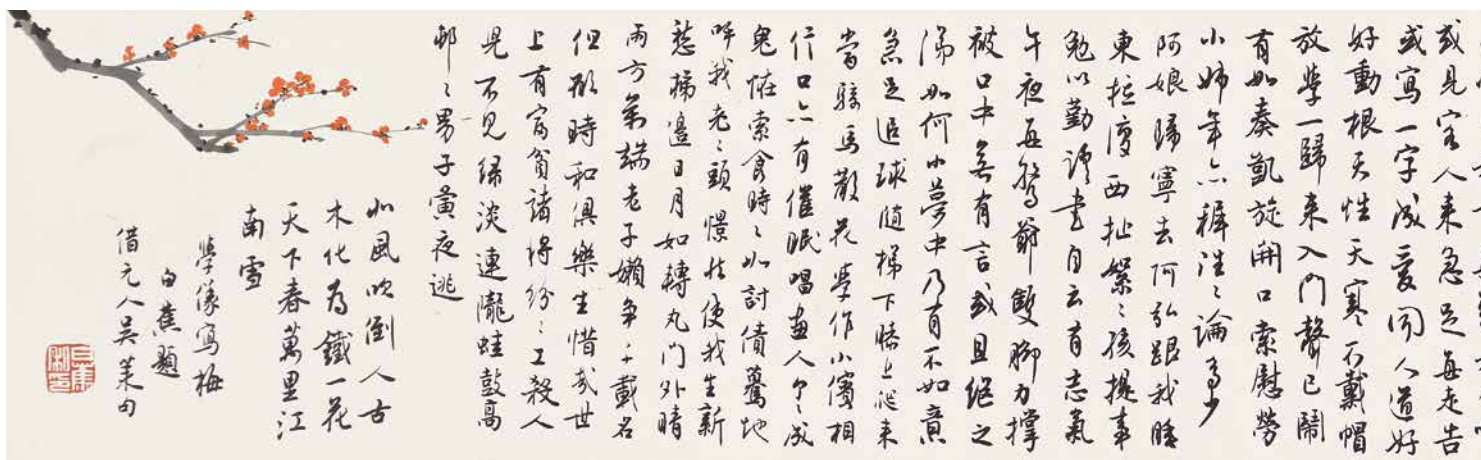 或見客人来急足每走告
或寫一字成愛聞人道好
好動根天性天寒不戴帽
放學一歸来入門聲已鬧
有如奏凱旋開口索慰勞
小姊年亦稺往〻論多少
阿娘歸寧去阿弘跟我睡
東拉復西扯絮〻孩提事
勉以勤讀書自云有志氣
午夜再驚爺雙腳力撐
被口中無有言或且繼之
涕如何小夢中乃有不如意
急足追球隨梯下上爬来
當騎馬散花學作小儐相
口亦有催眠唱畫人个〻成
鬼怪索食時〻如討債驀地
呼我老〻頭憬然使我生新
愁梯邊日月如轉丸門外晴
雨方萬端老子嬾争千載名
但願時和俱樂生惜哉世
上有富貧諸將紛〻工殺人
兒不見綠淡連隴蛙鼓高
邨〻男子黃夜逃
北風吹倒人古
木化為鐵一花
天下春萬里江
南雪
學濠寫梅
白蕉題
借元人吳萊句